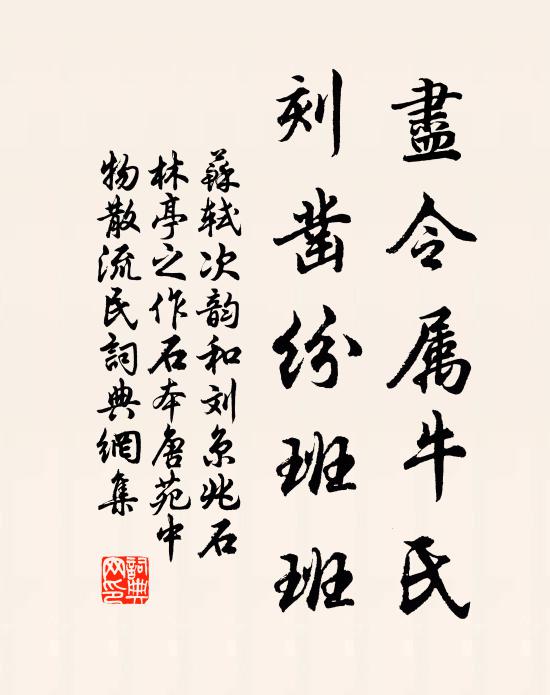 盡令属牛氏
刻凿纷班班
蘇轼次韵和刘京兆石
林亭之作石本唐苑中
物散流民詞典網集
詞典网印